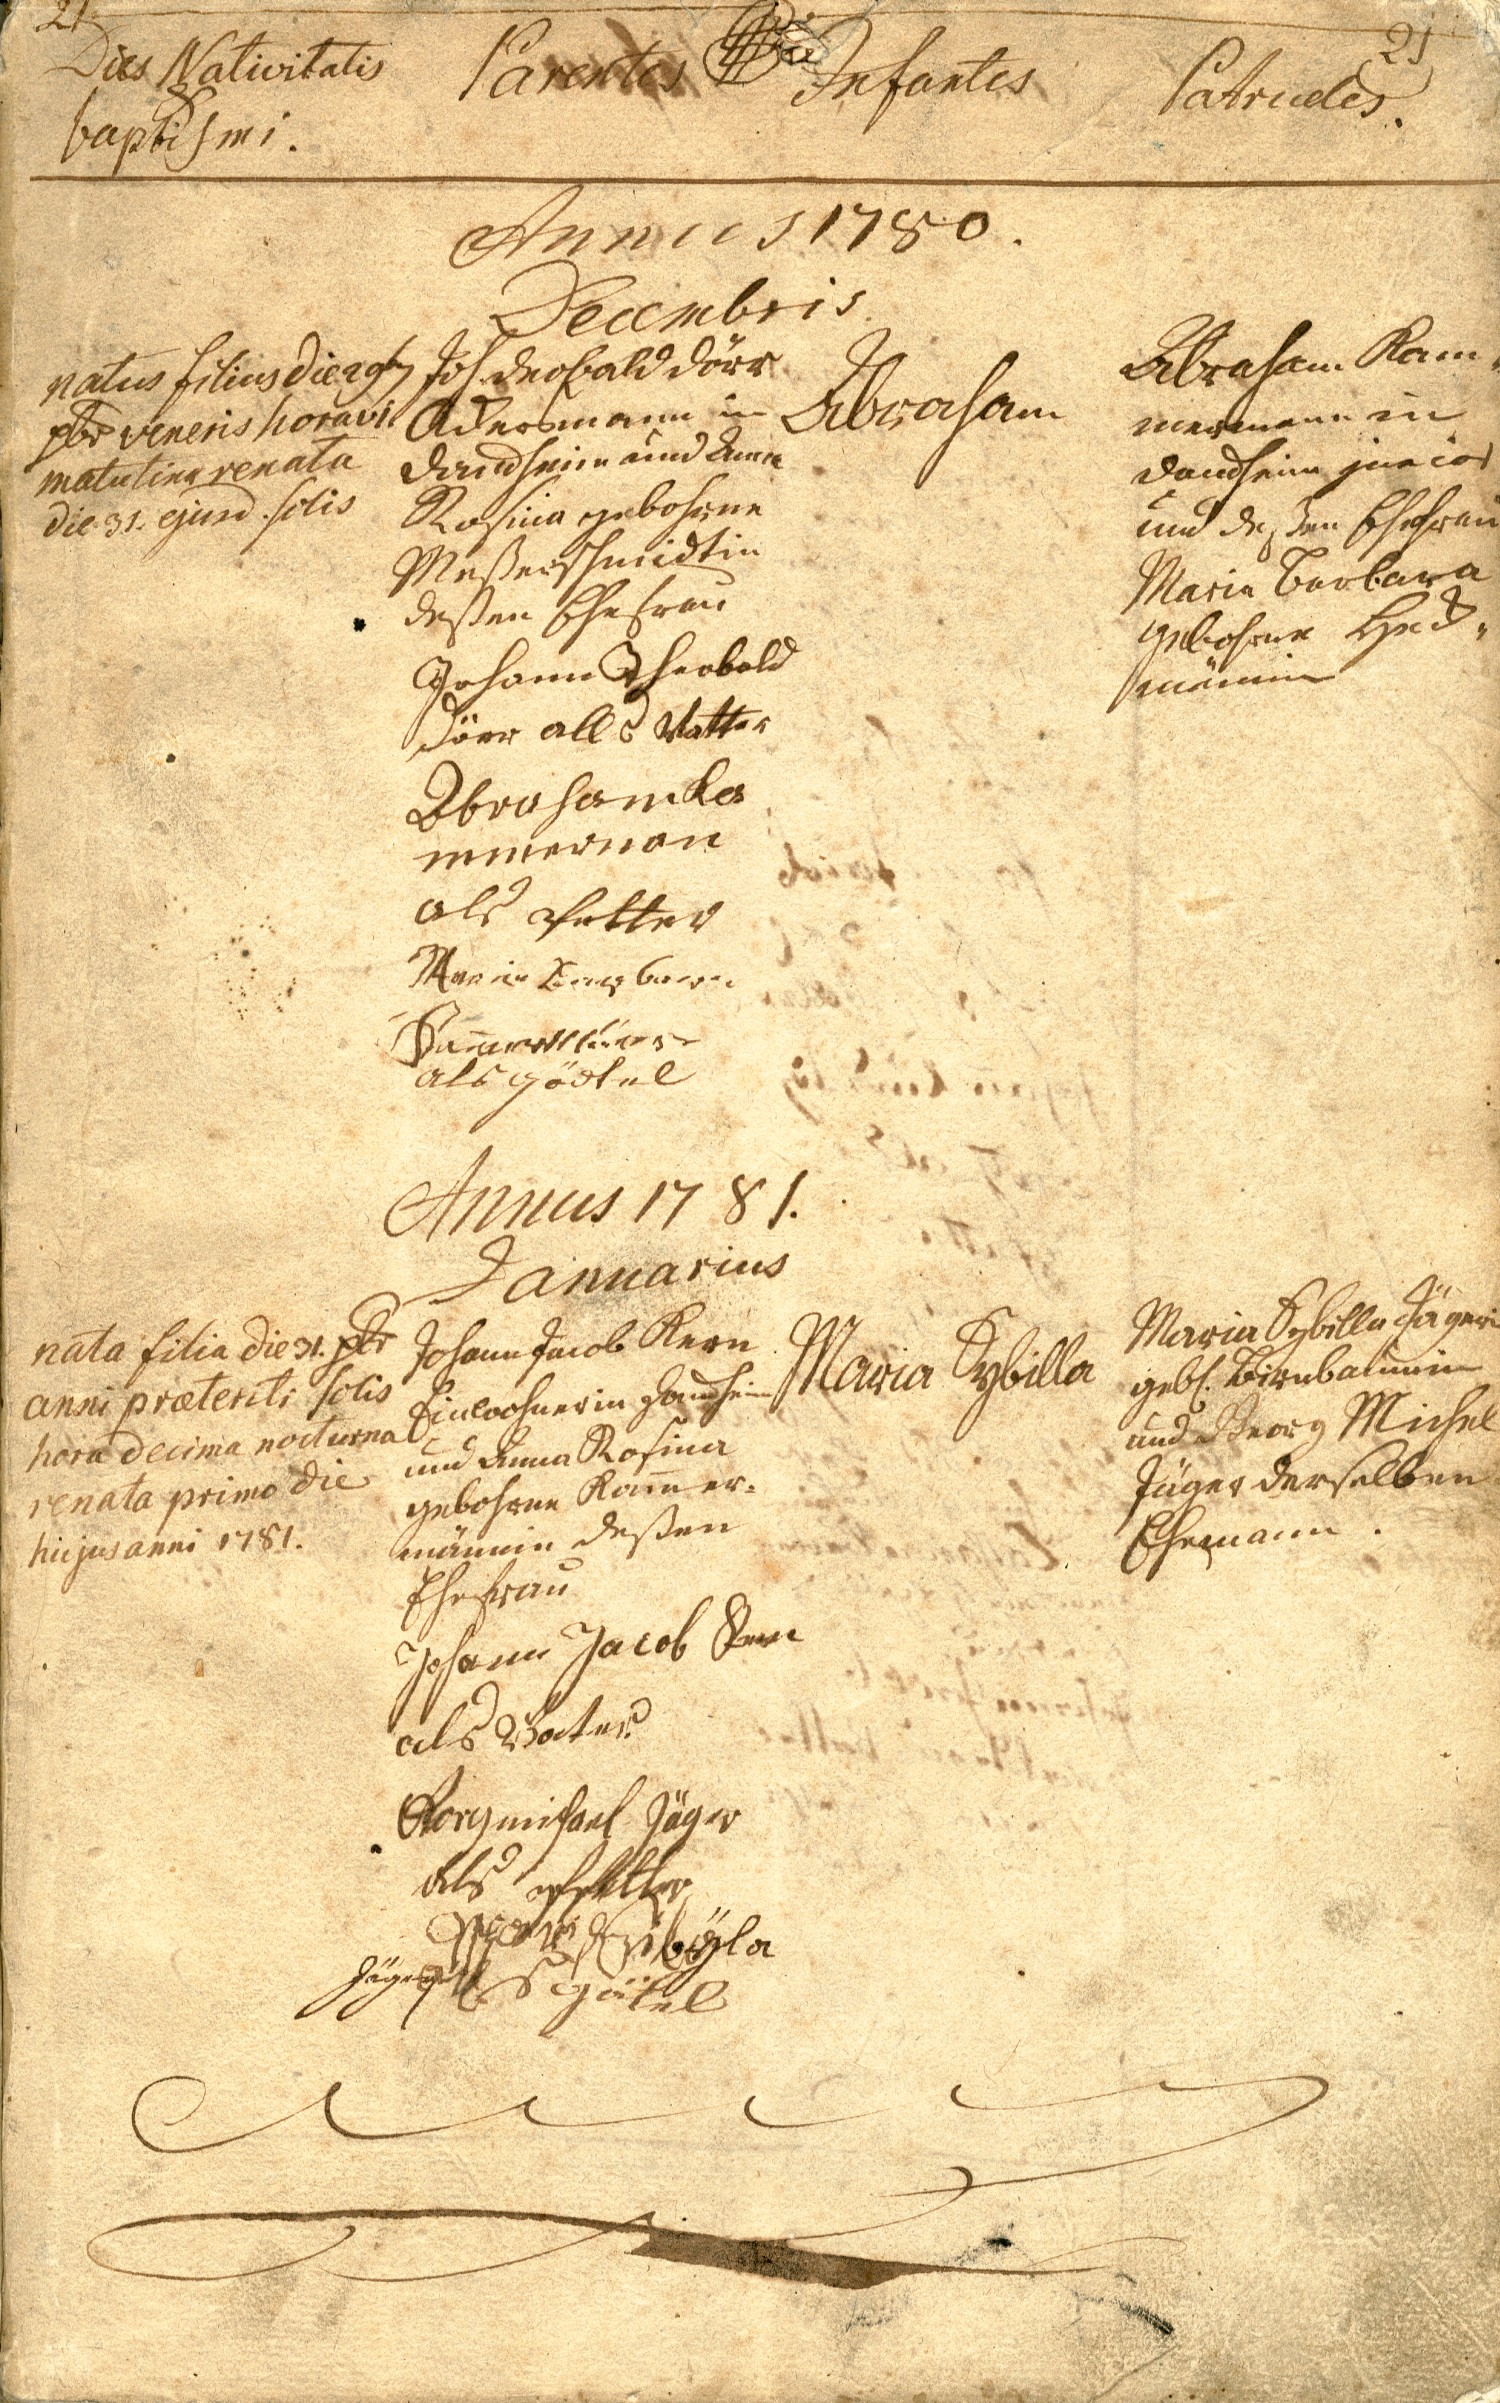 21
21
Dies Nativitatis
&
baptismi.
Parentes
Infantes
Patrueles.
Annus 1780.
Decembris.
natus filius die 29
xbr veneris hora vi
matutina renata
die 31. ejusd. solis
Joh. Deobald Dörr
Ackersmann in
Daudheim und Anna
Rosina gebohrne
Meßerschmidtin
deßen Ehefrau
Johann Theobald
Dörr alls Vatter
Abraham Ka
mmerman
als Petter
Maria
als gödtel
Abraham
Abraham Kam„
mermann in
Daudheim junior
und deßen Ehefrau
Maria Barbara
gebohrne
männin
Annus 1781.
Januarius
nata filia die 31. xbr
anni præteriti solis
hora decima nocturna
renata primo die
hujus anni 1781.
Johann Jacob Kern
Einwohner in Daudheim
und Anna Rosina
gebohrne Kam̄er-
männin deßen
Ehefrau
Johann Jacob Kern
als Vater
Georg michael Jäger
als Pfetter
Sibÿla
Jäger
als götel
Maria Sybilla
Maria Sybilla Jägerin
gebh. Birnbaumin
und Georg Michel
Jäger derselben
Ehemann.